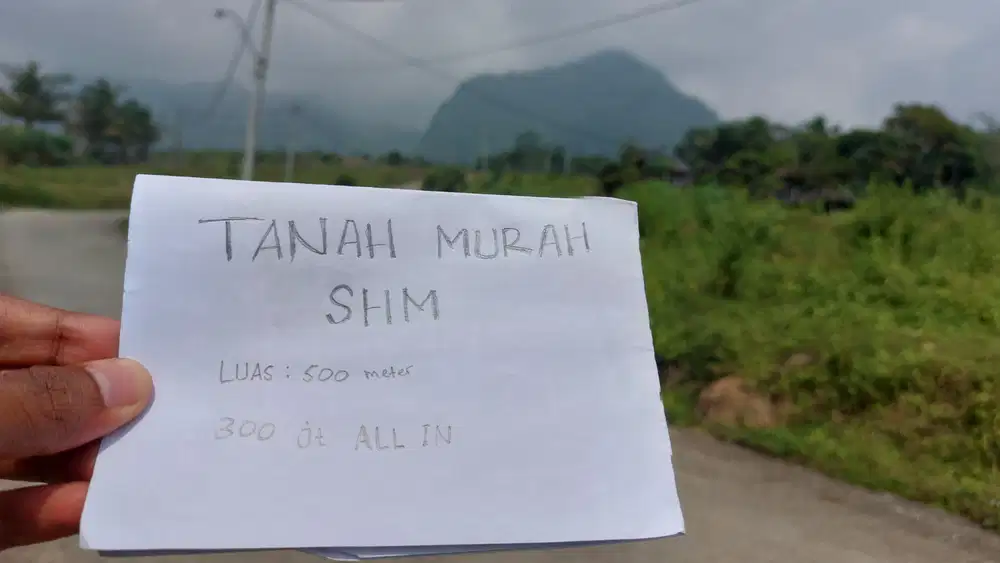 TANAH MURAH
SHM
LUAS : 500 meter
300 Jt ALL IN